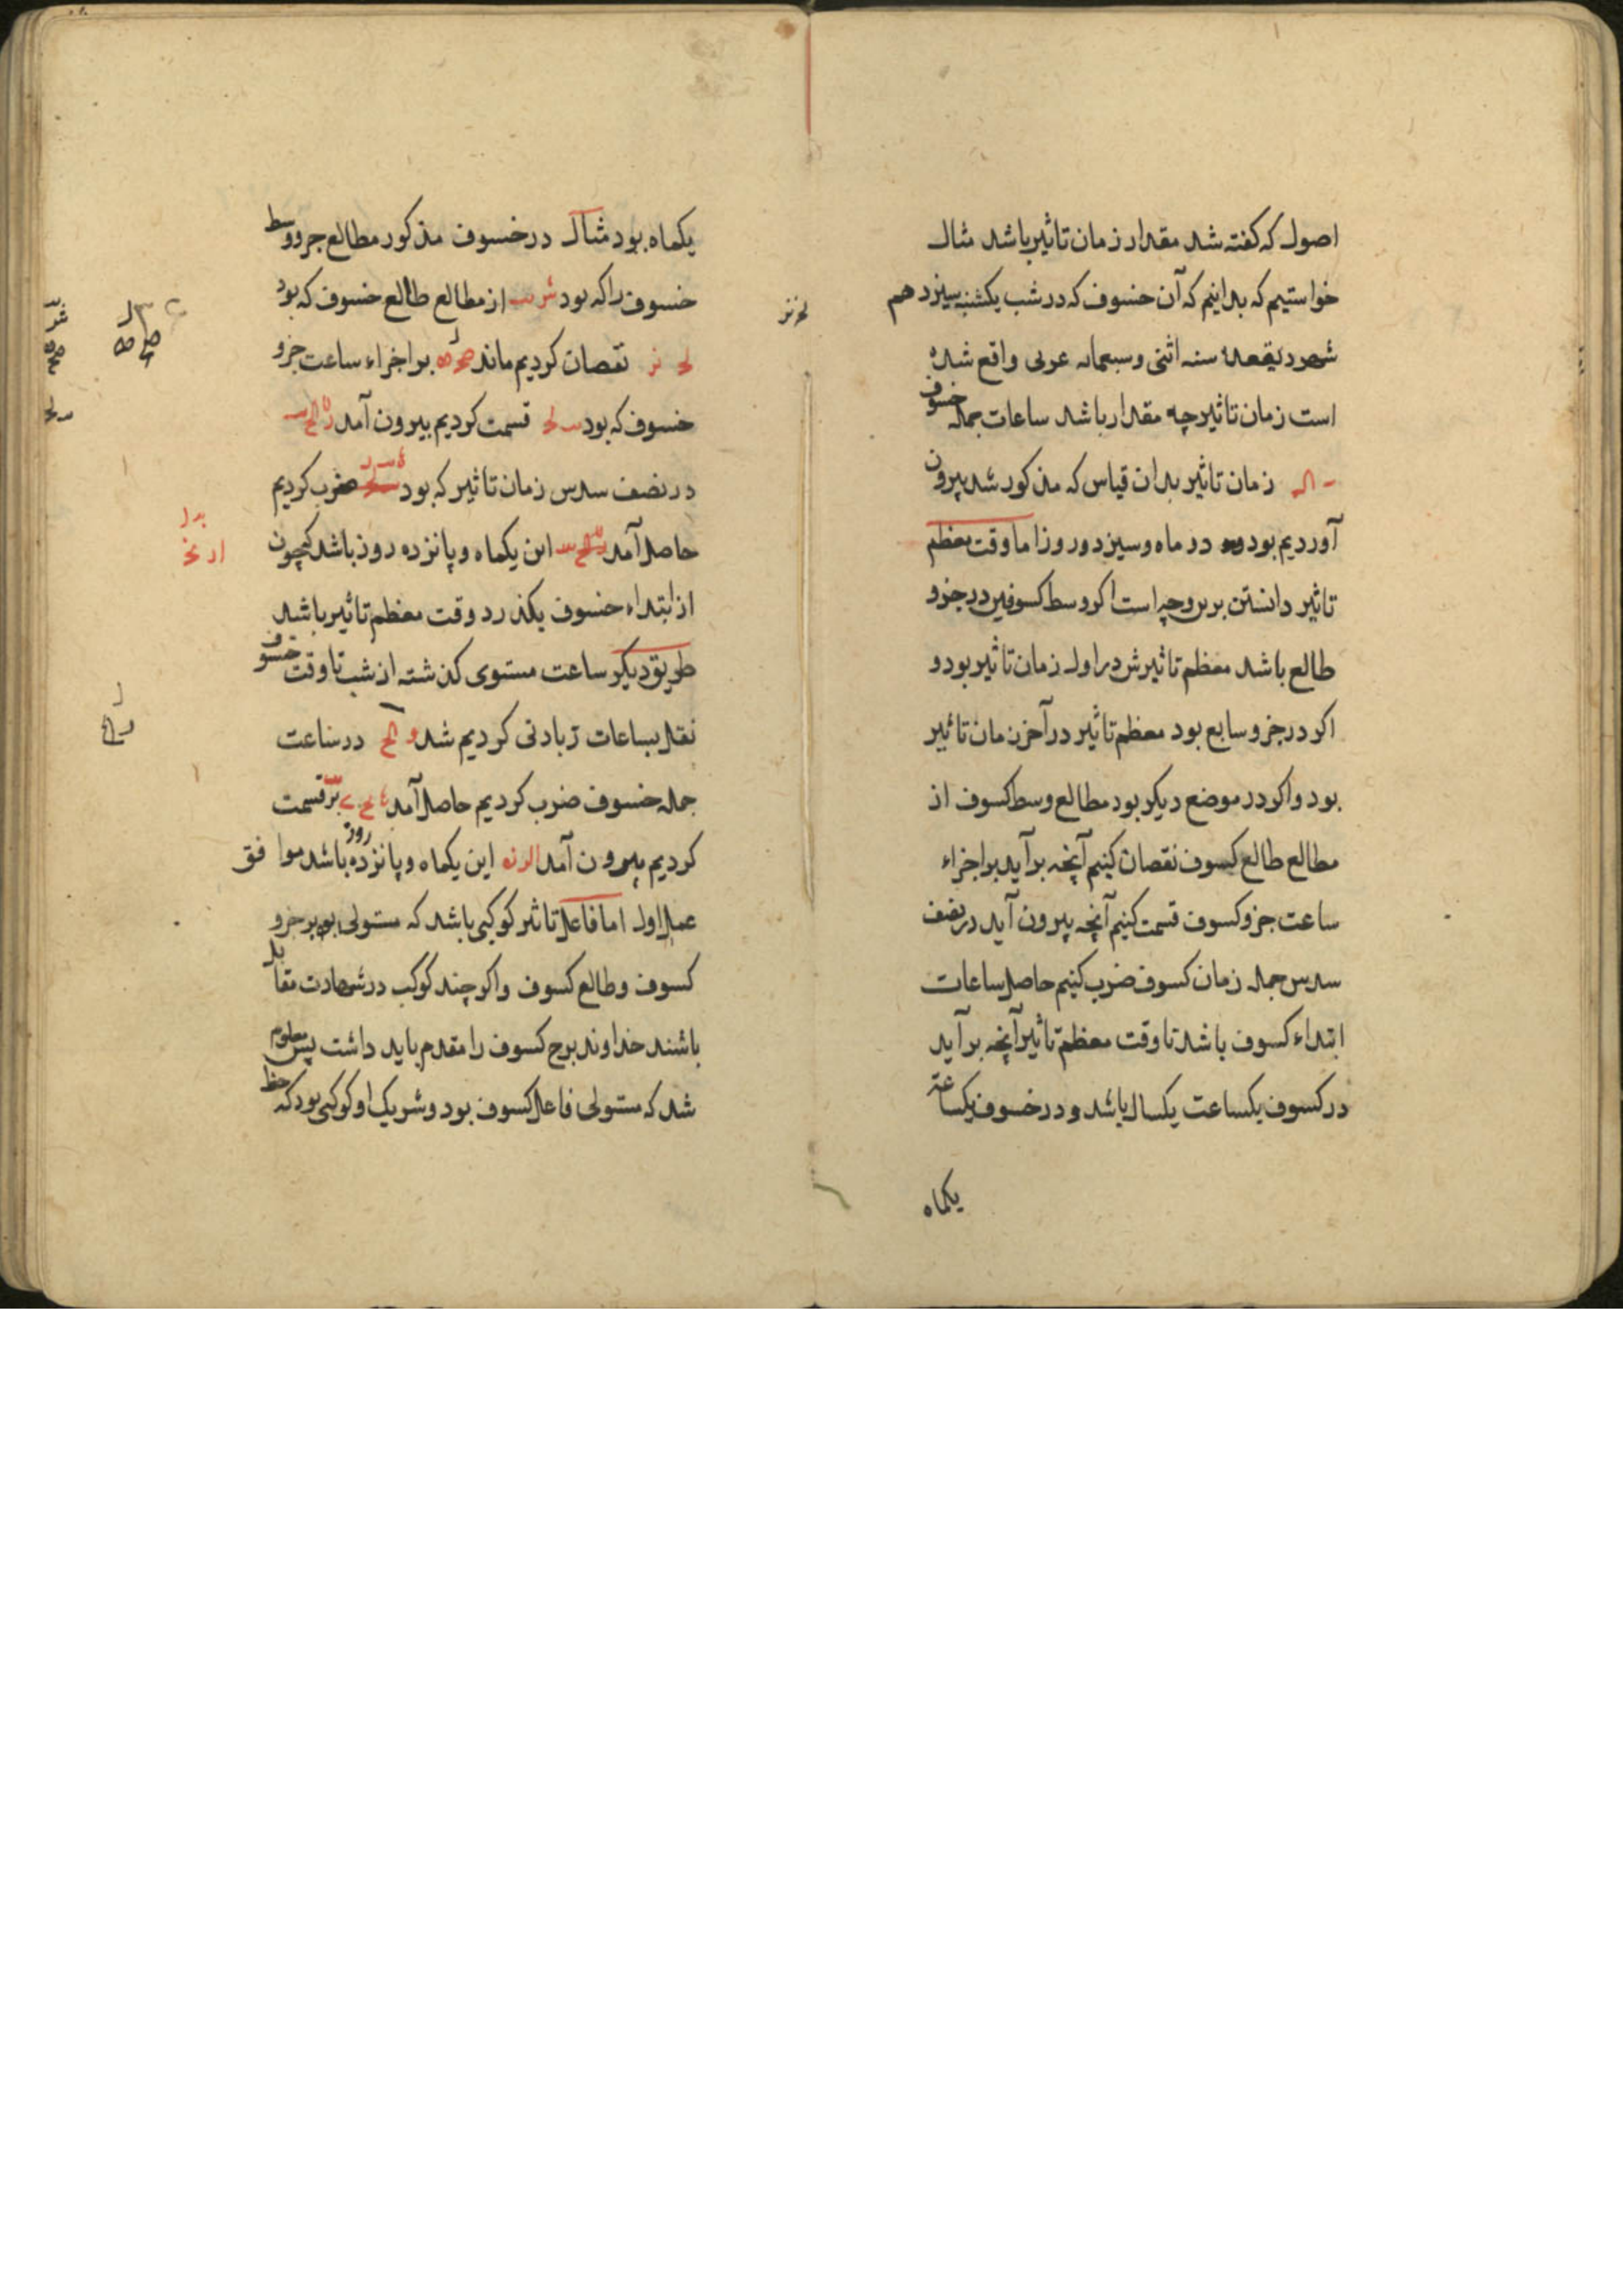 اصول که کفته شد مقدار زمان تاثیر باشد مثال
خواستیم که بدانیم که آن خسوف که در شب یکشنبه سیزدهم
شهر ذیقعده سنه اثنی وسبعمایه عربی واقع شده
است زمان تاثیر چه مقدار باشد ساعات جمله خسوف
زمان تاثیر بدان قیاس که مذکور شد بیرون
آوردیم بود دو در ماه وسیزده روز اما وقت معظم
تاثیر دانستن برین وجه است اکر وسط کسوفین در جزو
طالع باشد معظم تاثیرش در اول زمان تاثیر بود و
اکر در جزو سابع بود معظم تاثیر در آخر زمان تاثیر
بود واکر در موضع دیکر بود مطالع وسط کسوف از
مطالع طالع کسوف نقصان کنیم آنچه برآید بر اجزاء
ساعت جزو کسوف قسمت کنیم آنچه بیرون آید در نصف
سدس جمله زمان کسوف ضرب کنیم حاصل ساعات
ابتداء کسوف باشد تا وقت معظم تاثیر آنچه برآید
در کسوف یکساعت یکسال باشد و در خسوف یکساعة
یکماه
یکماه بود مثال در خسوف مذکور مطالع جزو وسط
خسوف را که بود از مطالع طالع خسوف که بود
لح نز نقصان کردیم ماند بر اجزاء ساعت جزو
خسوف که بود قسمت کردیم بیرون آمد
در نصف سدس زمان تاثیر که بود ضرب کردیم
حاصل آمد این یکماه وپانزده روز باشد کچون
از ابتداء خسوف بکذرد وقت معظم تاثیر باشد
طریق دیکر ساعت مستوی کذشته از شب تا وقت خسوف
نقل بساعات زیادتی کردیم شد در ساعت
جمله خسوف ضرب کردیم حاصل آمد قسمت
کردیم بیرون آمد این یکماه وپانزده روز باشد موافق
عمل اول اما فاعل تاثیر کوکبی باشد که مستولی بود بر جزو
کسوف وطالع کسوف واکر چند کوکب در شهادت مقابل
باشند خداوند برج کسوف را مقدم باید داشت پس معلوم
شد که مستولی فاعل کسوف بود وشریک او کوکبی بود که حظ